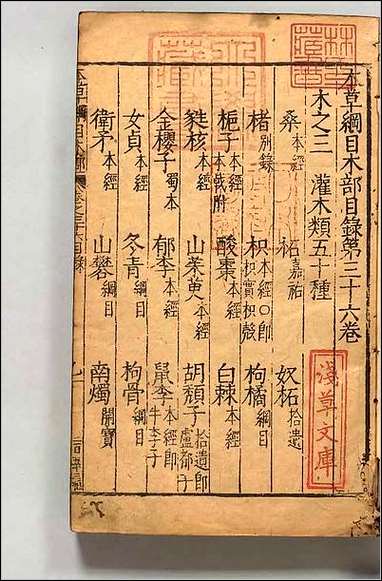 本草綱目木部目錄第三十六卷
木之三　灌木類五十種
桑本經　柘嘉祐　奴柘拾遺
楮別錄　枳本經○即枳實枳殼　枸橘綱目
梔子本經木戟附　酸棗本經　白棘本經
蕤核本經　山茱萸本經　胡頹子拾遺即盧都子
金櫻子蜀本　郁李本經　鼠李本經即牛李子
女貞本經　冬青綱目　枸骨綱目
衛矛本經　山礬綱目　南燭開寶
淺草文庫